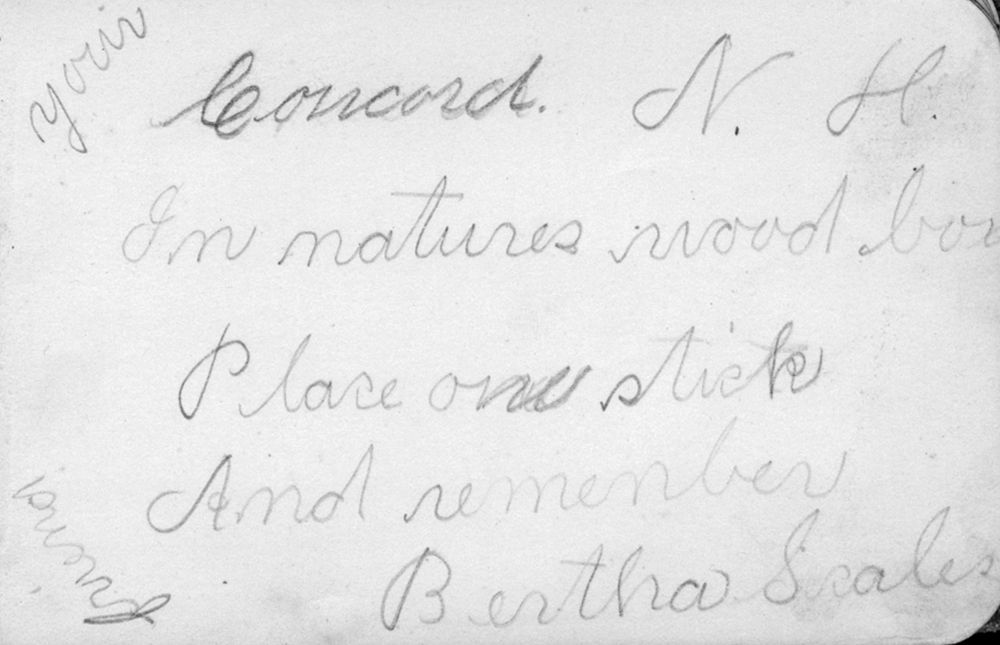 Your
Concord. N. H.
In natures wood box
Place one stick
And remember
Bertha Scales
Friend